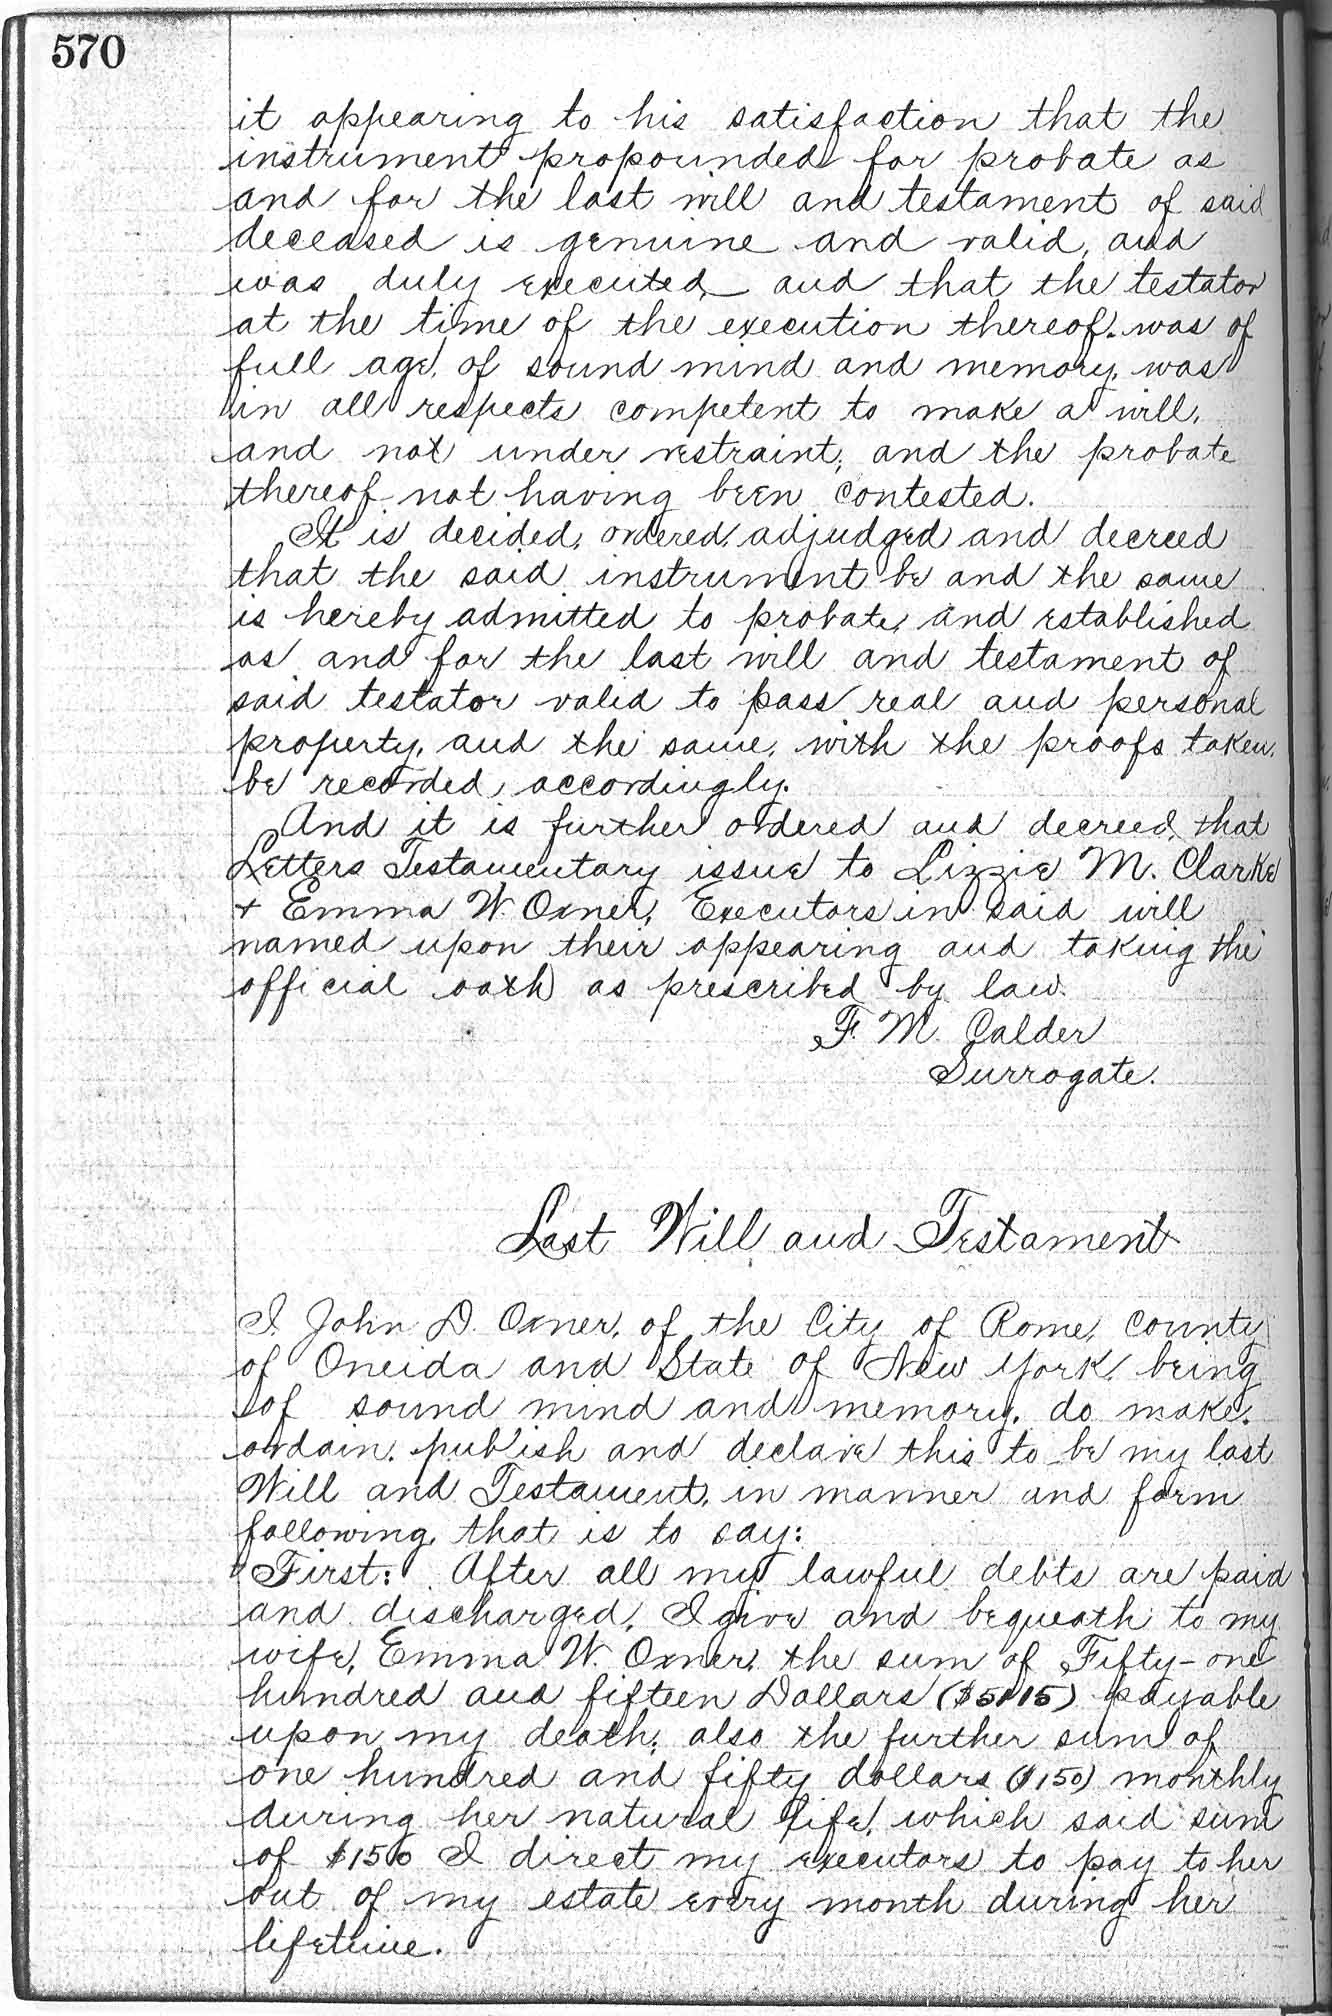 570
it appearing to his satisfaction that the
instrument propounded for probate as
and for the last will and testament of said
deceased is genuine and valid, and
was duly executed, and that the testator
at the time of the execution thereof, was of
full age, of sound mind and memory, was
in all respects competent to make a will,
and not under restraint; and the probate
thereof not having been contested.
It is decided, ordered, adjudged and decreed
that the said instrument be and the same
is hereby admitted to probate, and established
as and for the last will and testament of
said testator valid to pass real and personal
property, and the same, with the proofs taken,
be recorded, accordingly.
And it is further ordered and decreed, that
Letters Testamentary issue to Lizzie M. Clarke
+ Emma W. Oxner, Executors in said will
named upon their appearing and taking the
official oath as prescribed by law.
F. M. Calder
Surrogate.
Last Will and Testament
I, John D. Oxner, of the City of Rome, County
of Oneida and State of New York, being
of sound mind and memory, do make,
ordain, publish and declare this to be my last
Will and Testament, in manner and form
following, that is to say:
First: After all my lawful debts are paid
and discharged, I give and bequeath to my
wife, Emma W. Oxner, the sum of Fifty-one
hundred and fifteen Dollars ($5115) payable
upon my death; also the further sum of
one hundred and fifty dollars ($150) monthly
during her natural life, which said sum
of $150 I direct my executors to pay to her
out of my estate every month during her
lifetime.